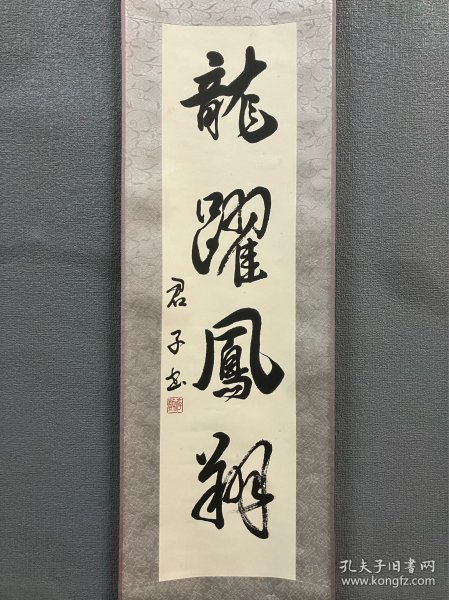 龍躍鳳翔
君子书
孔夫子旧书网
www.kongfz.com